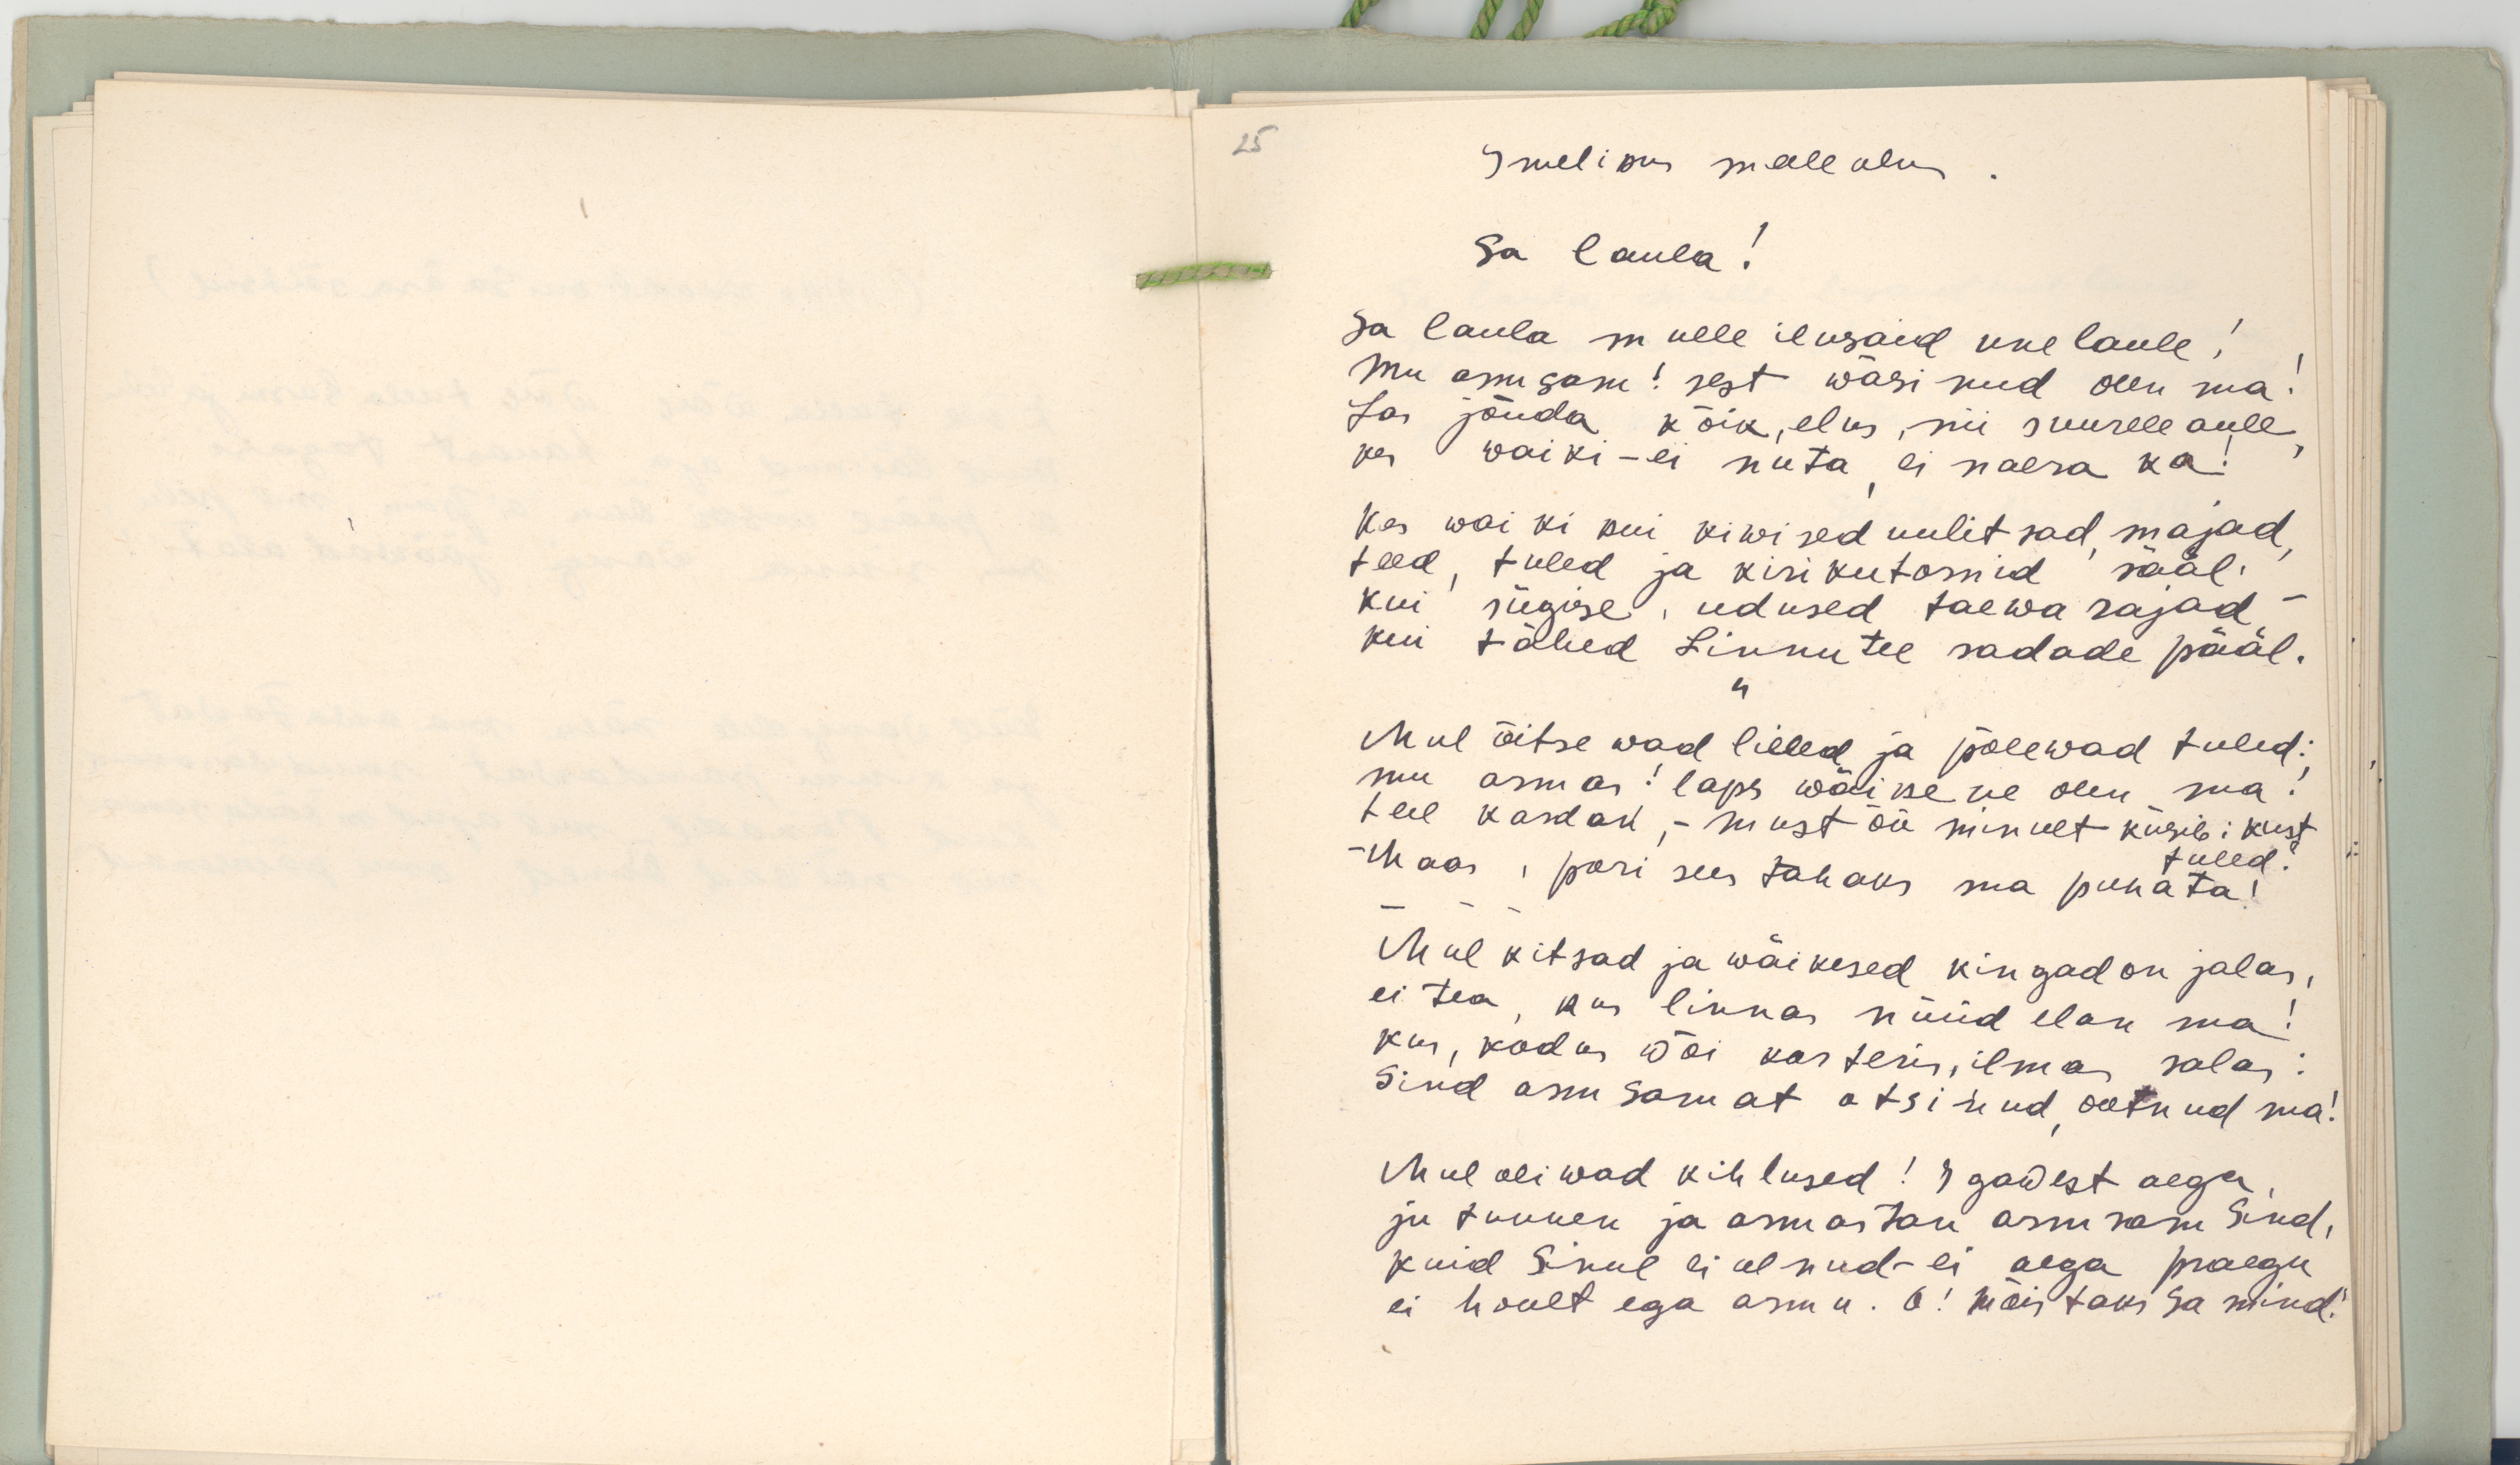 25
Imelikus meeleolus.
Sa laula!
Sa laula mulle ilusaid unelaule!
Mu armsam! sest wäsinud olen ma!
Las jõuda kõik, elus, nii suurele aule,
kes waiki-ei nuta, ei naera ka!
Kes waiki kui kiwised uulitsad, majad,
teed, tuled ja kirikutornid sääl.
kui sügise, udused taewa rajad -
kui tähed Linnutee radade pääl.
"
Mul õitsewad lilled ja põlewad tuled:
mu armas! laps wäikene olen ma!
teel kardan, - must öö minult küsib: kust
tuled?
- Maas, pori sees tahaks ma puhata!
- - -
Mul kitsad ja wäikesed kingad on jalas,
ei tea, kus linnas nüüd elan ma!
kus, kodus wõi korteris, ilmas salas:
Sind armsamat otsinud, ootnud ma!
Mul oliwad kihlused! Igawest aega,
ju tunnen ja armastan armsam Sind,
kuid Sinul ei olnud-ei aega praegu
ei hoolt ega armu. O! Mõistaks Sa mind!